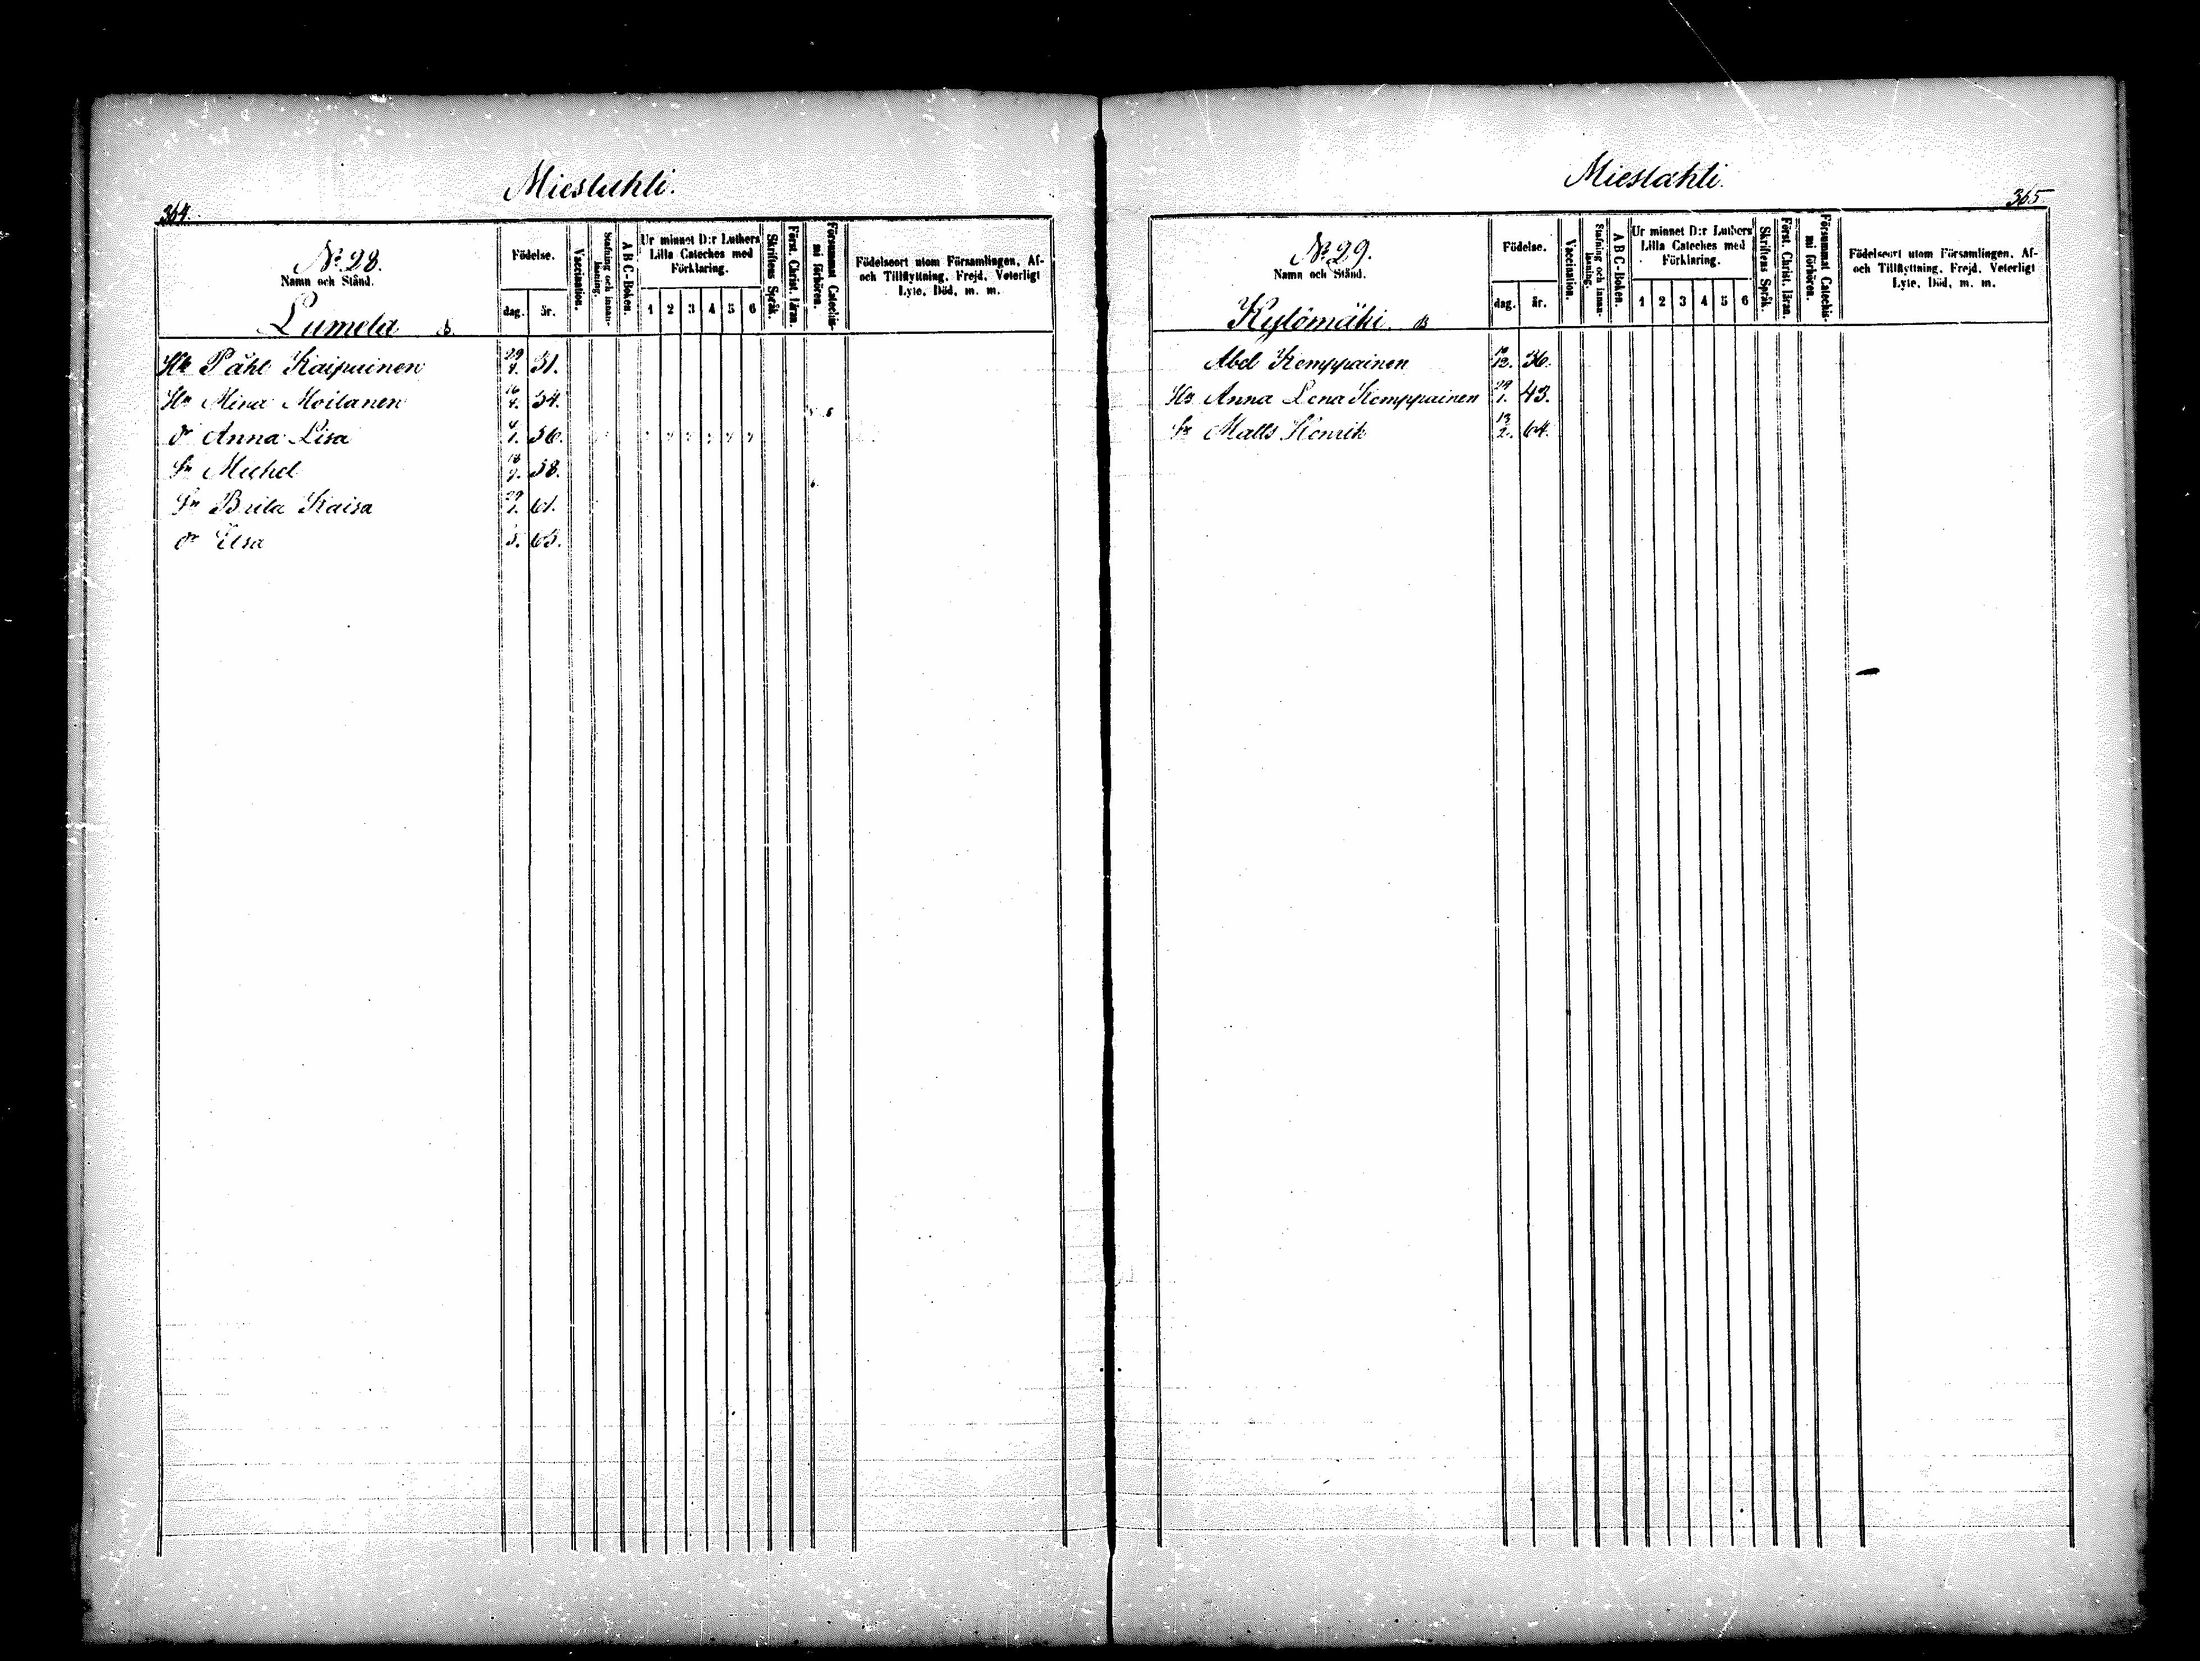 Mieslahti.
364.
No 28.
Namn och Stånd.
Lumela
Födelse.
dag. år.
Vaccination.
Stafning och innan-läsning.
A B C-Boken.
Ur minnet D:r Luthers
Lilla Cateches med
Förklaring.
1 2 3 4 5 6
Skriftens Språk.
Först. Christ. läran.
Försummat Catechis-
mi förhören.
Födelseort utom Församlingen, Af-
och Tillflyttning, Frejd, Veterligt
Lyte, Död, m. m.
Påhl Kaipainen 29/4. 31.
Hu Mina Moilanen 16/4. 34.
dr Anna Lisa 56.
Sn Michel 58.
Brita Kaisa 61.
dr Elsa 65.
Mieslahti.
365
No 29.
Namn och Stånd.
Kylömäki
Födelse.
dag. år.
Vaccination.
Stafning och innan-läsning.
A B C-Boken.
Ur minnet D:r Luthers
Lilla Cateches med
Förklaring.
1 2 3 4 5 6
Skriftens Språk.
Först. Christ. läran.
Försummat Catechis-
mi förhören.
Födelseort utom Församlingen, Af-
och Tillflyttning, Frejd, Veterligt
Lyte, Död, m. m.
Abel Kemppainen 36.
Hu Anna Lena Kemppainen 29/1. 43.
Sn Matts Henrik 13/2. 64.